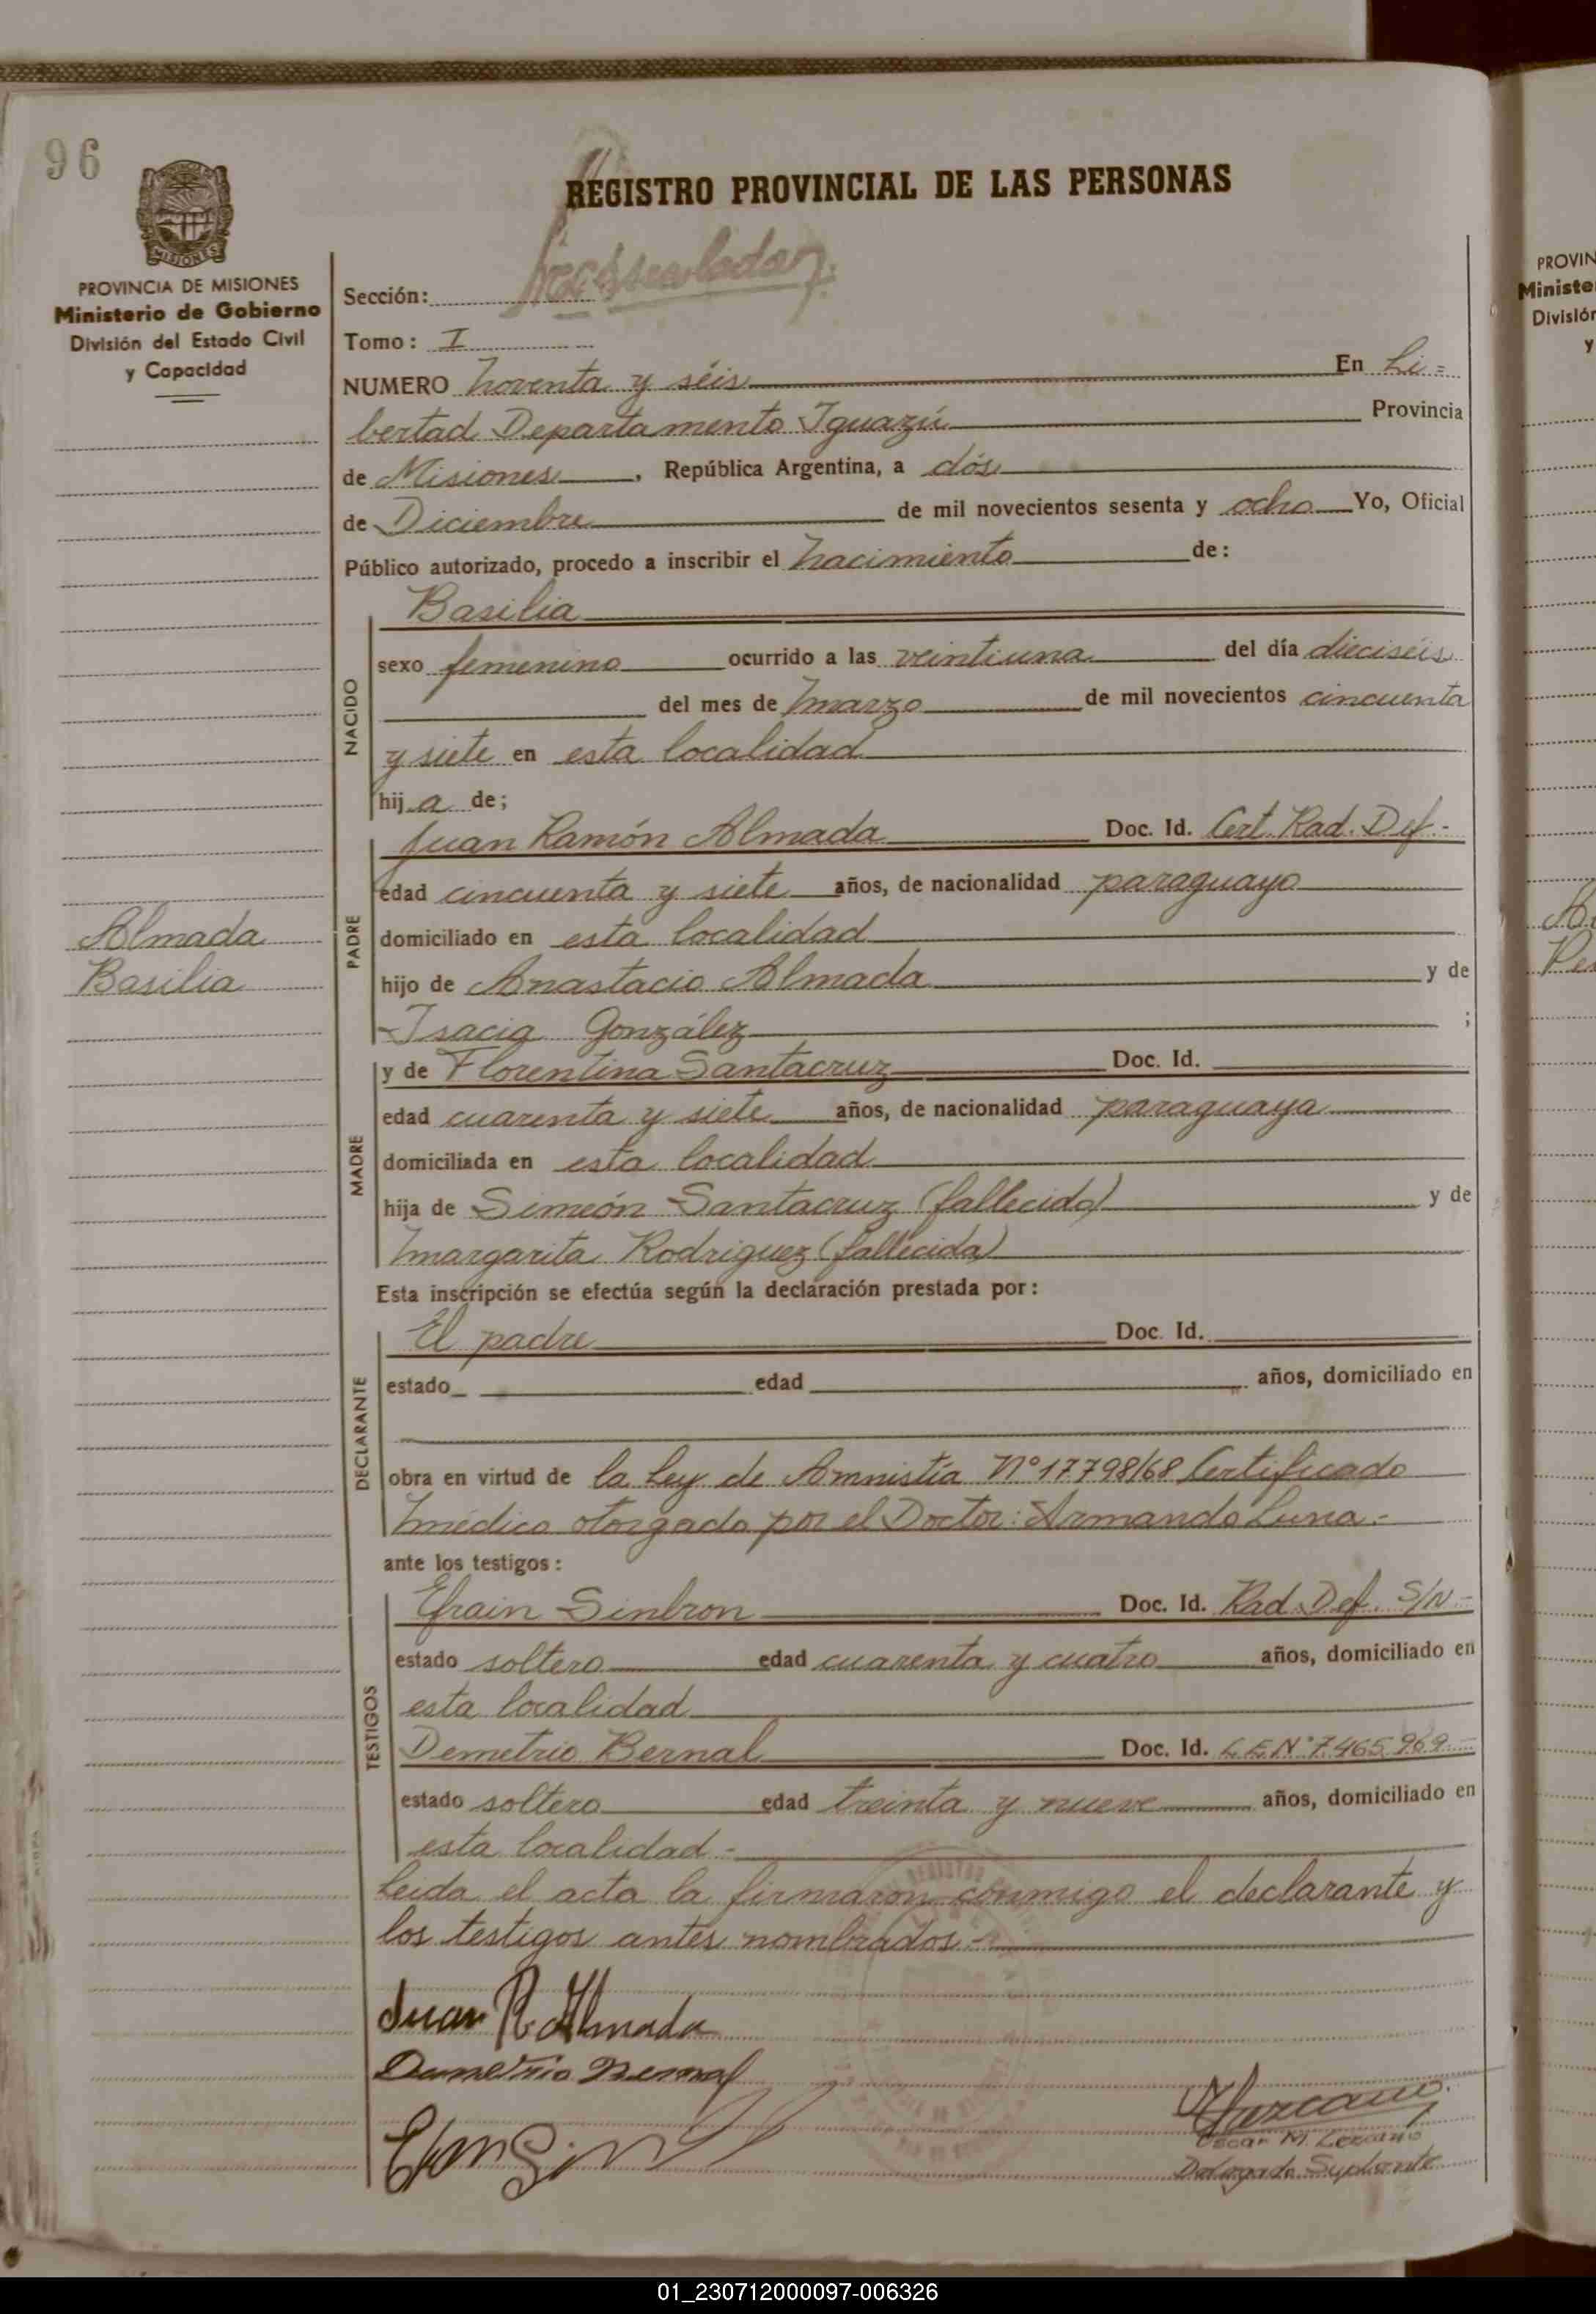 96
REGISTRO PROVINCIAL DE LAS PERSONAS
MISIONES
PROVINCIA DE MISIONES
Ministerio de Gobierno
División del Estado Civil
y Capacidad
Sección:
Tomo: I
NUMERO Noventa y séis En Li=
bertad Departamento Iguazú Provincia
de Misiones, República Argentina, a dós
de Diciembre de mil novecientos sesenta y ocho Yo, Oficial
Público autorizado, procedo a inscribir el Nacimiento de:
NACIDO
Basilia
sexo femenino ocurrido a las veintiuna del día dieciséis
del mes de Marzo de mil novecientos cincuenta
y siete en esta localidad
hija de;
PADRE
Juan Ramón Almada Doc. Id. Cert. Rad. Def.-
edad cincuenta y siete años, de nacionalidad paraguayo
domiciliado en esta localidad
hijo de Anastacio Almada y de
Isacia González ;
Almada
Basilia
MADRE
y de Florentina Santacruz Doc. Id.
edad cuarenta y siete años, de nacionalidad paraguaya
domiciliada en esta localidad
hija de Simeón Santacruz (fallecido) y de
Margarita Rodriguez (fallecida)
Esta inscripción se efectúa según la declaración prestada por:
DECLARANTE
El padre Doc. Id.
estado edad años, domiciliado en
obra en virtud de la Ley de Amnistía Nº 17798/68 Certificado
Médico otorgado por el Doctor: Armando Luna.-
ante los testigos:
TESTIGOS
Efrain Sinbron Doc. Id. Rad. Def. S/N-
estado soltero edad cuarenta y cuatro años, domiciliado en
esta localidad
Demetrio Bernal Doc. Id. L.E.Nº 7.465.969.-
estado soltero edad treinta y nueve años, domiciliado en
esta localidad.-
Leida el acta la firmaron conmigo el declarante y
los testigos antes nombrados.-
Juan R. Almada
Demetrio Bernal
Oscar M. Lezcano
Delegado Suplente
PROVIN
Ministe
División
y
01_230712000097-006326